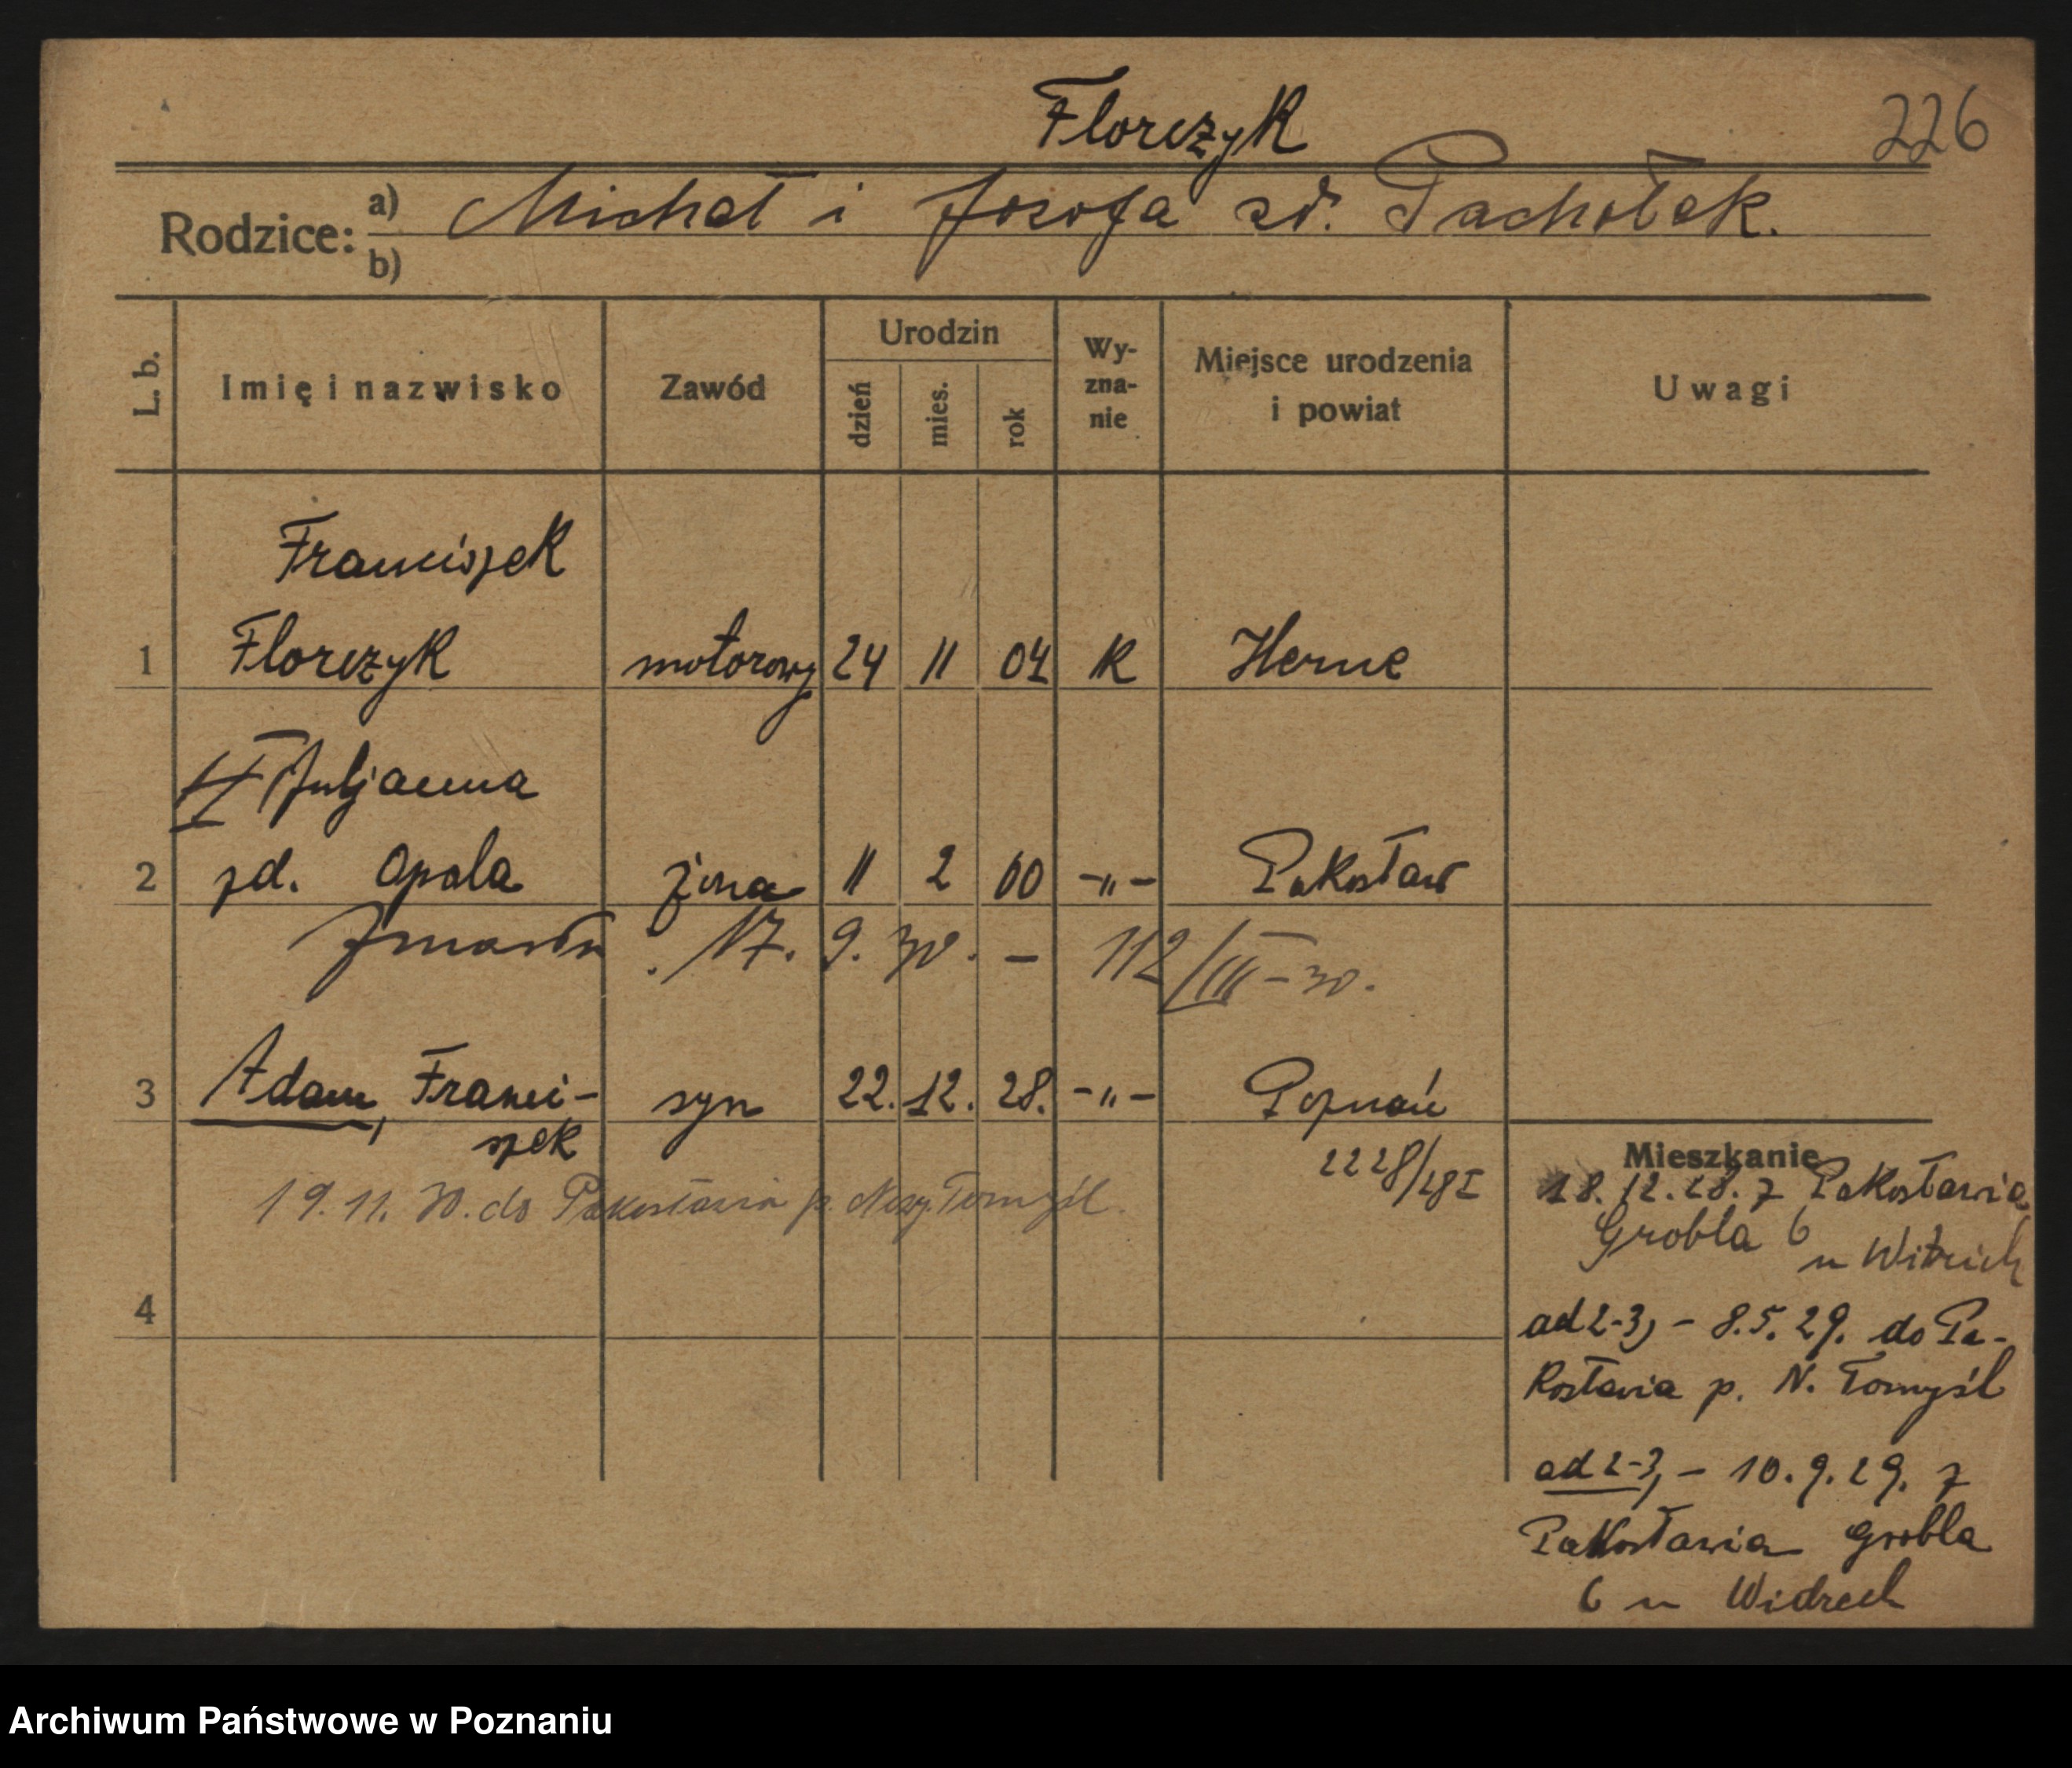 Florczyk 226
Rodzice: a) Michał i Józefa zd. Pachołek.
b)
L. b. Imię i nazwisko Zawód Urodzin dzień mies. rok Wy-zna-nie Miejsce urodzenia i powiat Uwagi
Franciszek
1 Florczyk motorowy 24 11 04 K Herne
Juljanna
2 zd. Opala żona 11 2 00 -"- Pakosław
Zmarła 17. 9. 30. - 112/III-30.
3 Adam, Franci- syn 22. 12. 28. -"- Poznań
szek 2228/28 I
19. 11. 30. do Pakosławia p. Nowy Tomyśl.
4
Mieszkanie
18. 12. 28. z Pakosławia
Grobla 6
u
ad 2-3, - 8. 5. 29. do Pa-
kosławia p. N. Tomyśl
ad 2-3, - 10. 9. 29. z
Pakosławia Grobla
6 u
Archiwum Państwowe w Poznaniu